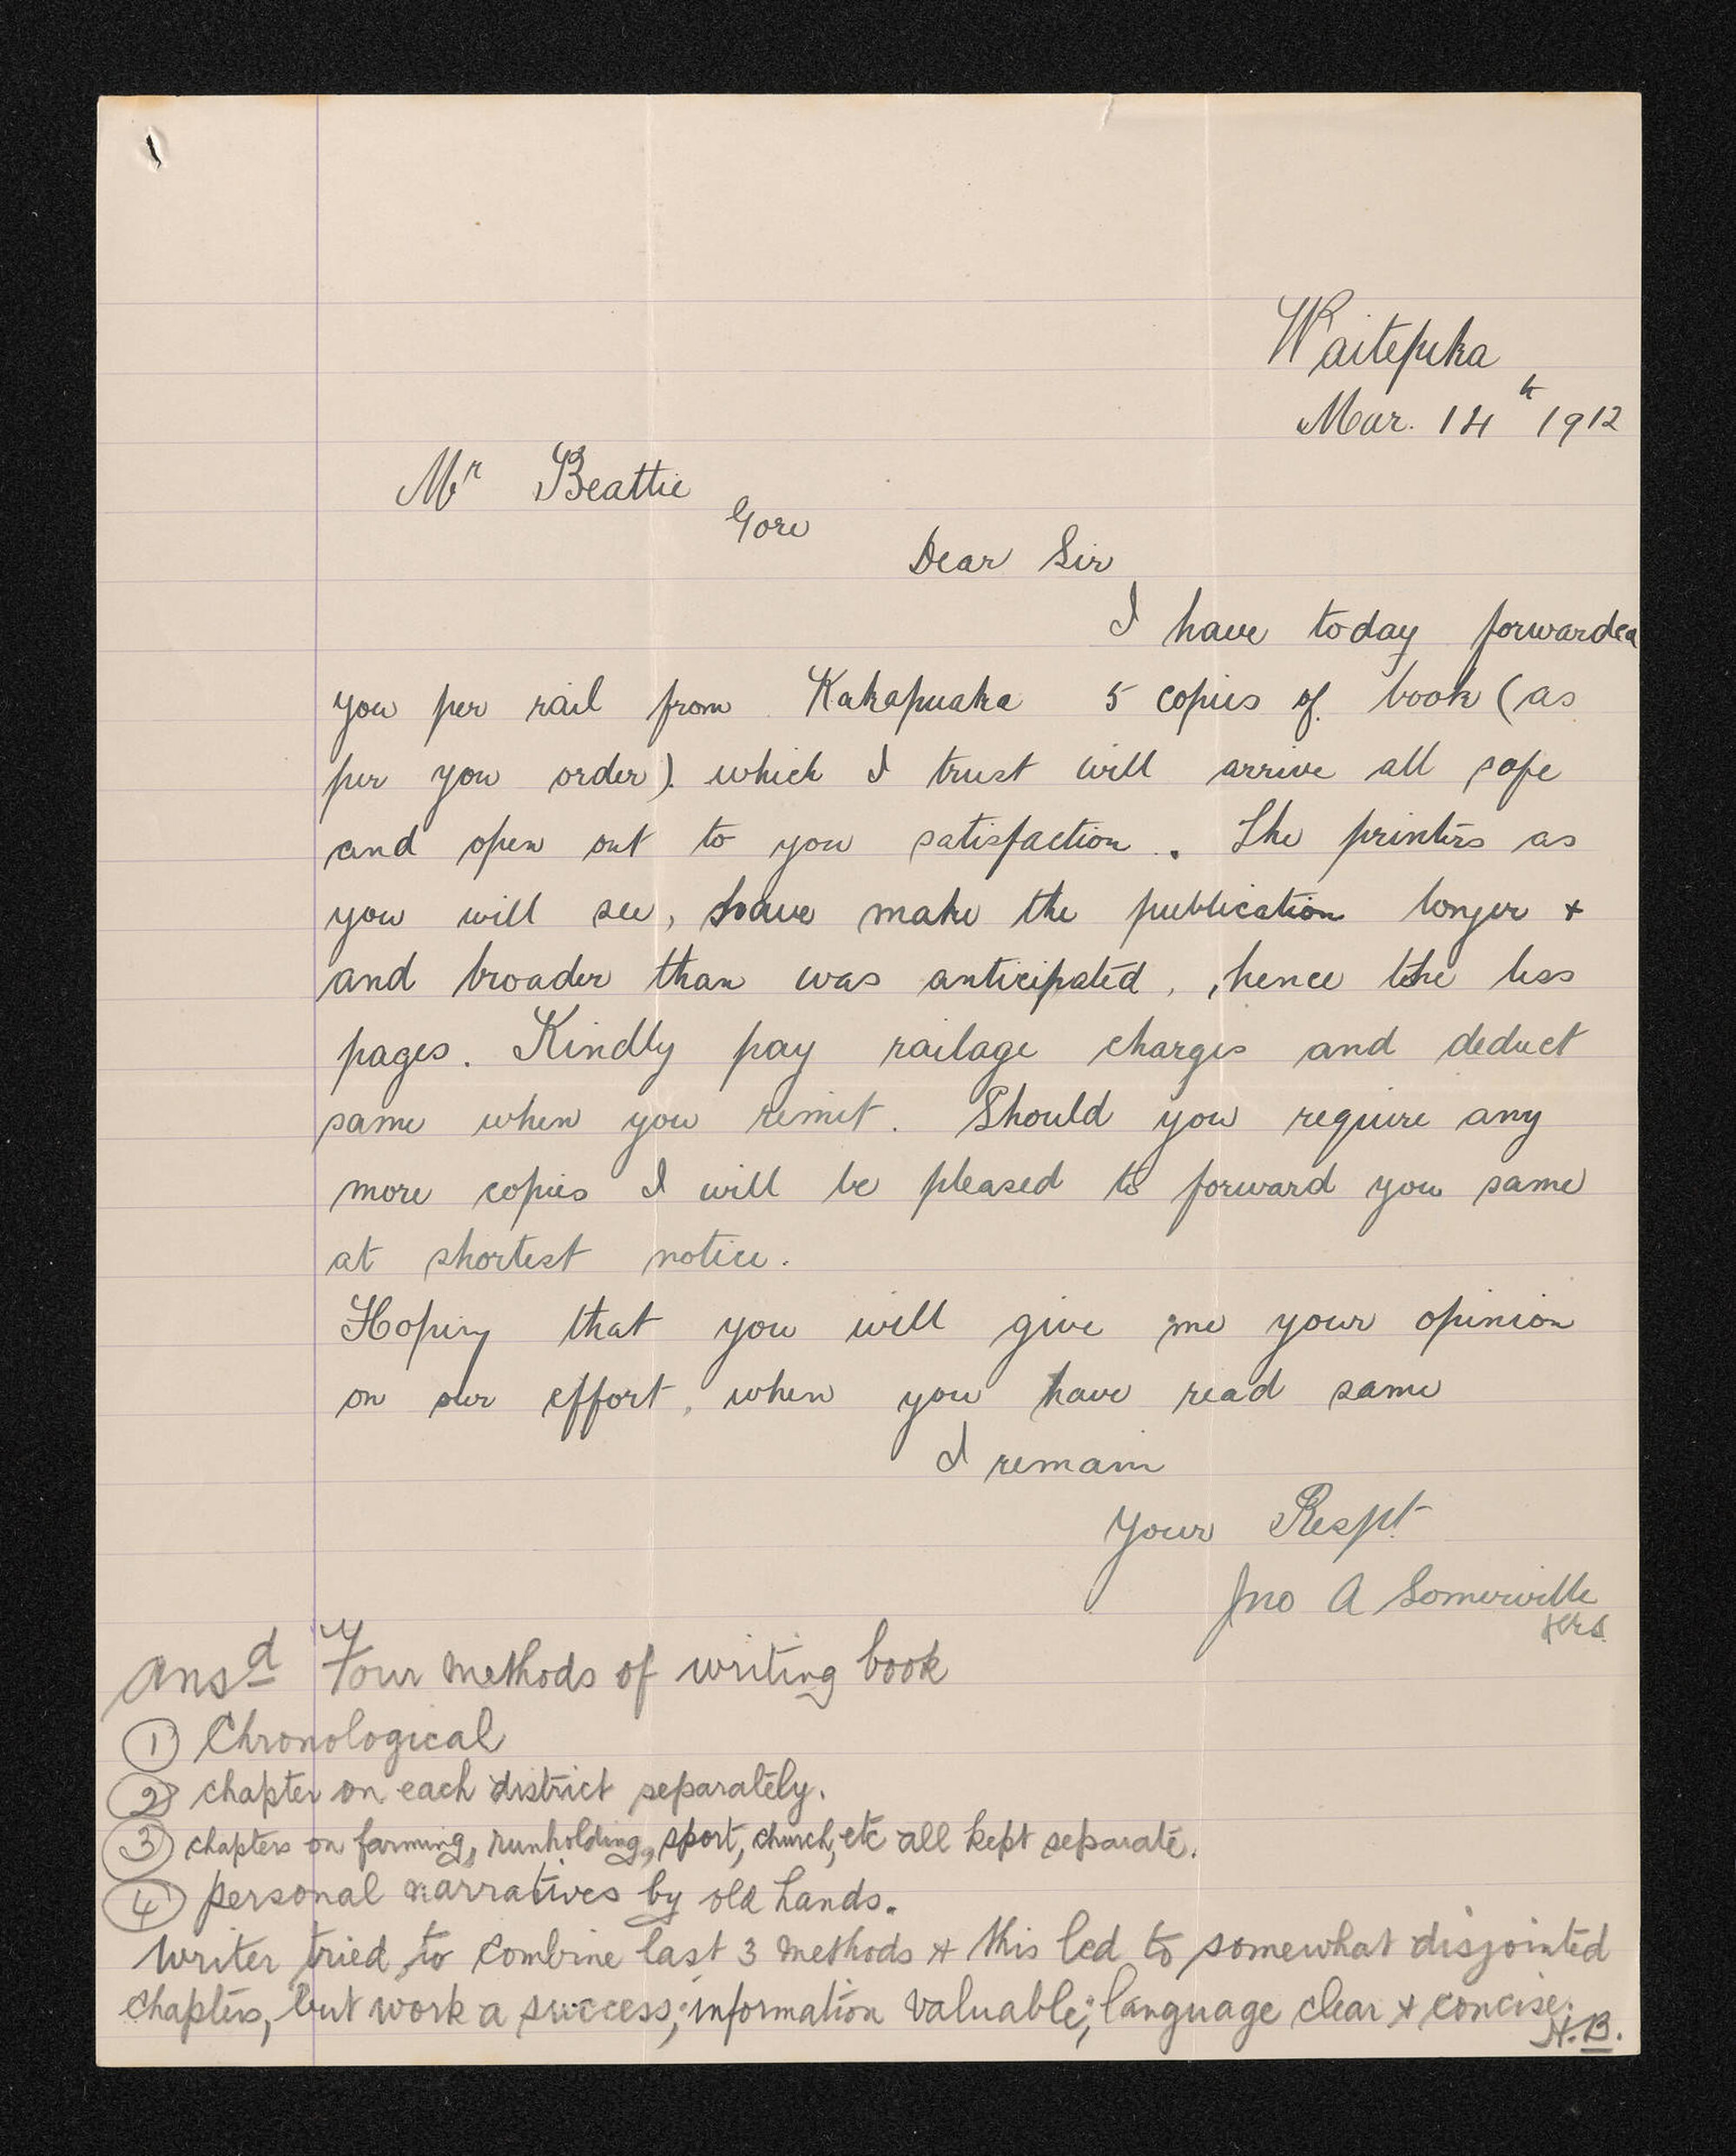 Waitepeka
Mar. 14th 1912
Mr Beattie
Gore
Dear Sir
I have today forwarded
you per rail from Kakapuaka 5 copies of book (as
per you order) which I trust will arrive all safe
and open out to you satisfaction. The printers as
you will see, have make the publication longer +
and broader than was anticipated, hence the less
pages. Kindly pay railage charges and deduct
same when you remit. Should you require any
more copies I will be pleased to forward you same
at shortest notice.
Hoping that you will give me your opinion
on our effort, when you have read same
I remain
Your Respt
Jno A Somerville
Ansd Four methods of writing book
① Chronological
② chapter on each district separately.
③ chapters on farming, runholding, sport, church, etc all kept separate.
④ personal narratives by old hands.
Writer tried to combine last 3 methods + this led to somewhat disjointed
chapters, but work a success; information valuable; language clear + concise.
H.B.